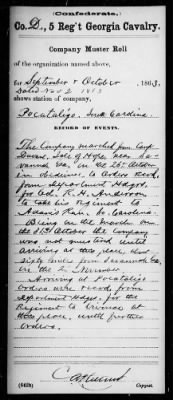 (Confederate.)
Co. D, 5 Reg't Georgia Cavalry.
Company Muster Roll
of the organization named above,
for September & October, 1863.
dated Nov 2 1863
shows station of company,
Pocataligo, South Carolina
RECORD OF EVENTS.
The Company marched from Camp
Isle of Hope near Sa-
vannah Ga. on the 26th October
in obedience to orders recd.
from Department Hdqrs.
for Col. R. H. Anderson
to take his regiment to
Adams Run, So. Carolina.
Being on the march on
the 31st October the Company
was not mustered until
arriving at this place, about
sixty miles from Savannah Ga.
on the 2. November
Arriving at Pocataligo
orders were recd. from
Department Hdqrs. for the
Regiment to bivouac at
this place, until further
orders.
Copyist.